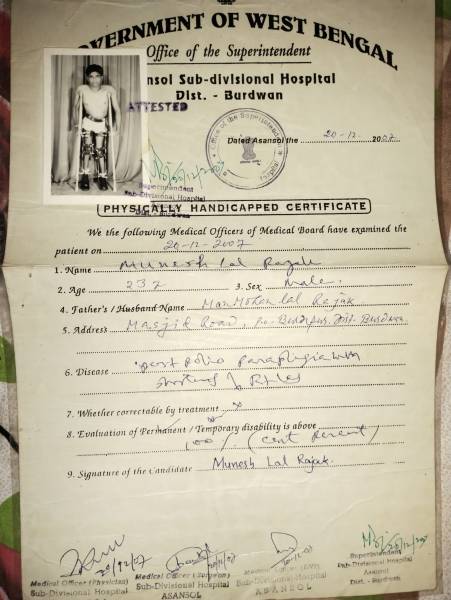 GOVERNMENT OF WEST BENGAL
Office of the Superintendent
Asansol Sub-divisional Hospital
Dist. - Burdwan
ATTESTED
Office of the Superintendent
Dated Asansol the 20-12- 2007
20/12/2007
Superintendent
Sub-Divisional Hospital
Dist. - Burdwan
PHYSICALLY HANDICAPPED CERTIFICATE
We the following Medical Officers of Medical Board have examined the
patient on 20-12-2007
1. Name Munesh Lal Rajak
2. Age 23y 3. Sex Male.
4. Father's / Husband Name Man Mohan lal Rajak
5. Address Masjid Road, Po. Burnpur, Dist. Burdwan
6. Disease post polio paraplegia with
shortening of Rt leg
7. Whether correctable by treatment No
8. Evaluation of Permanent / Temporary disability is above
100 % (cent percent)
9. Signature of the Candidate Munesh Lal Rajak.
20/12/07
Medical Officer (Physician)
Sub-Divisional Hospital
Medical Officer (Surgeon)
Sub-Divisional Hospital
ASANSOL
Medical Officer
Sub-Divisional Hospital
ASANSOL
20/12/2007
Superintendent
Sub-Divisional Hospital
Asansol
Dist. - Burdwan